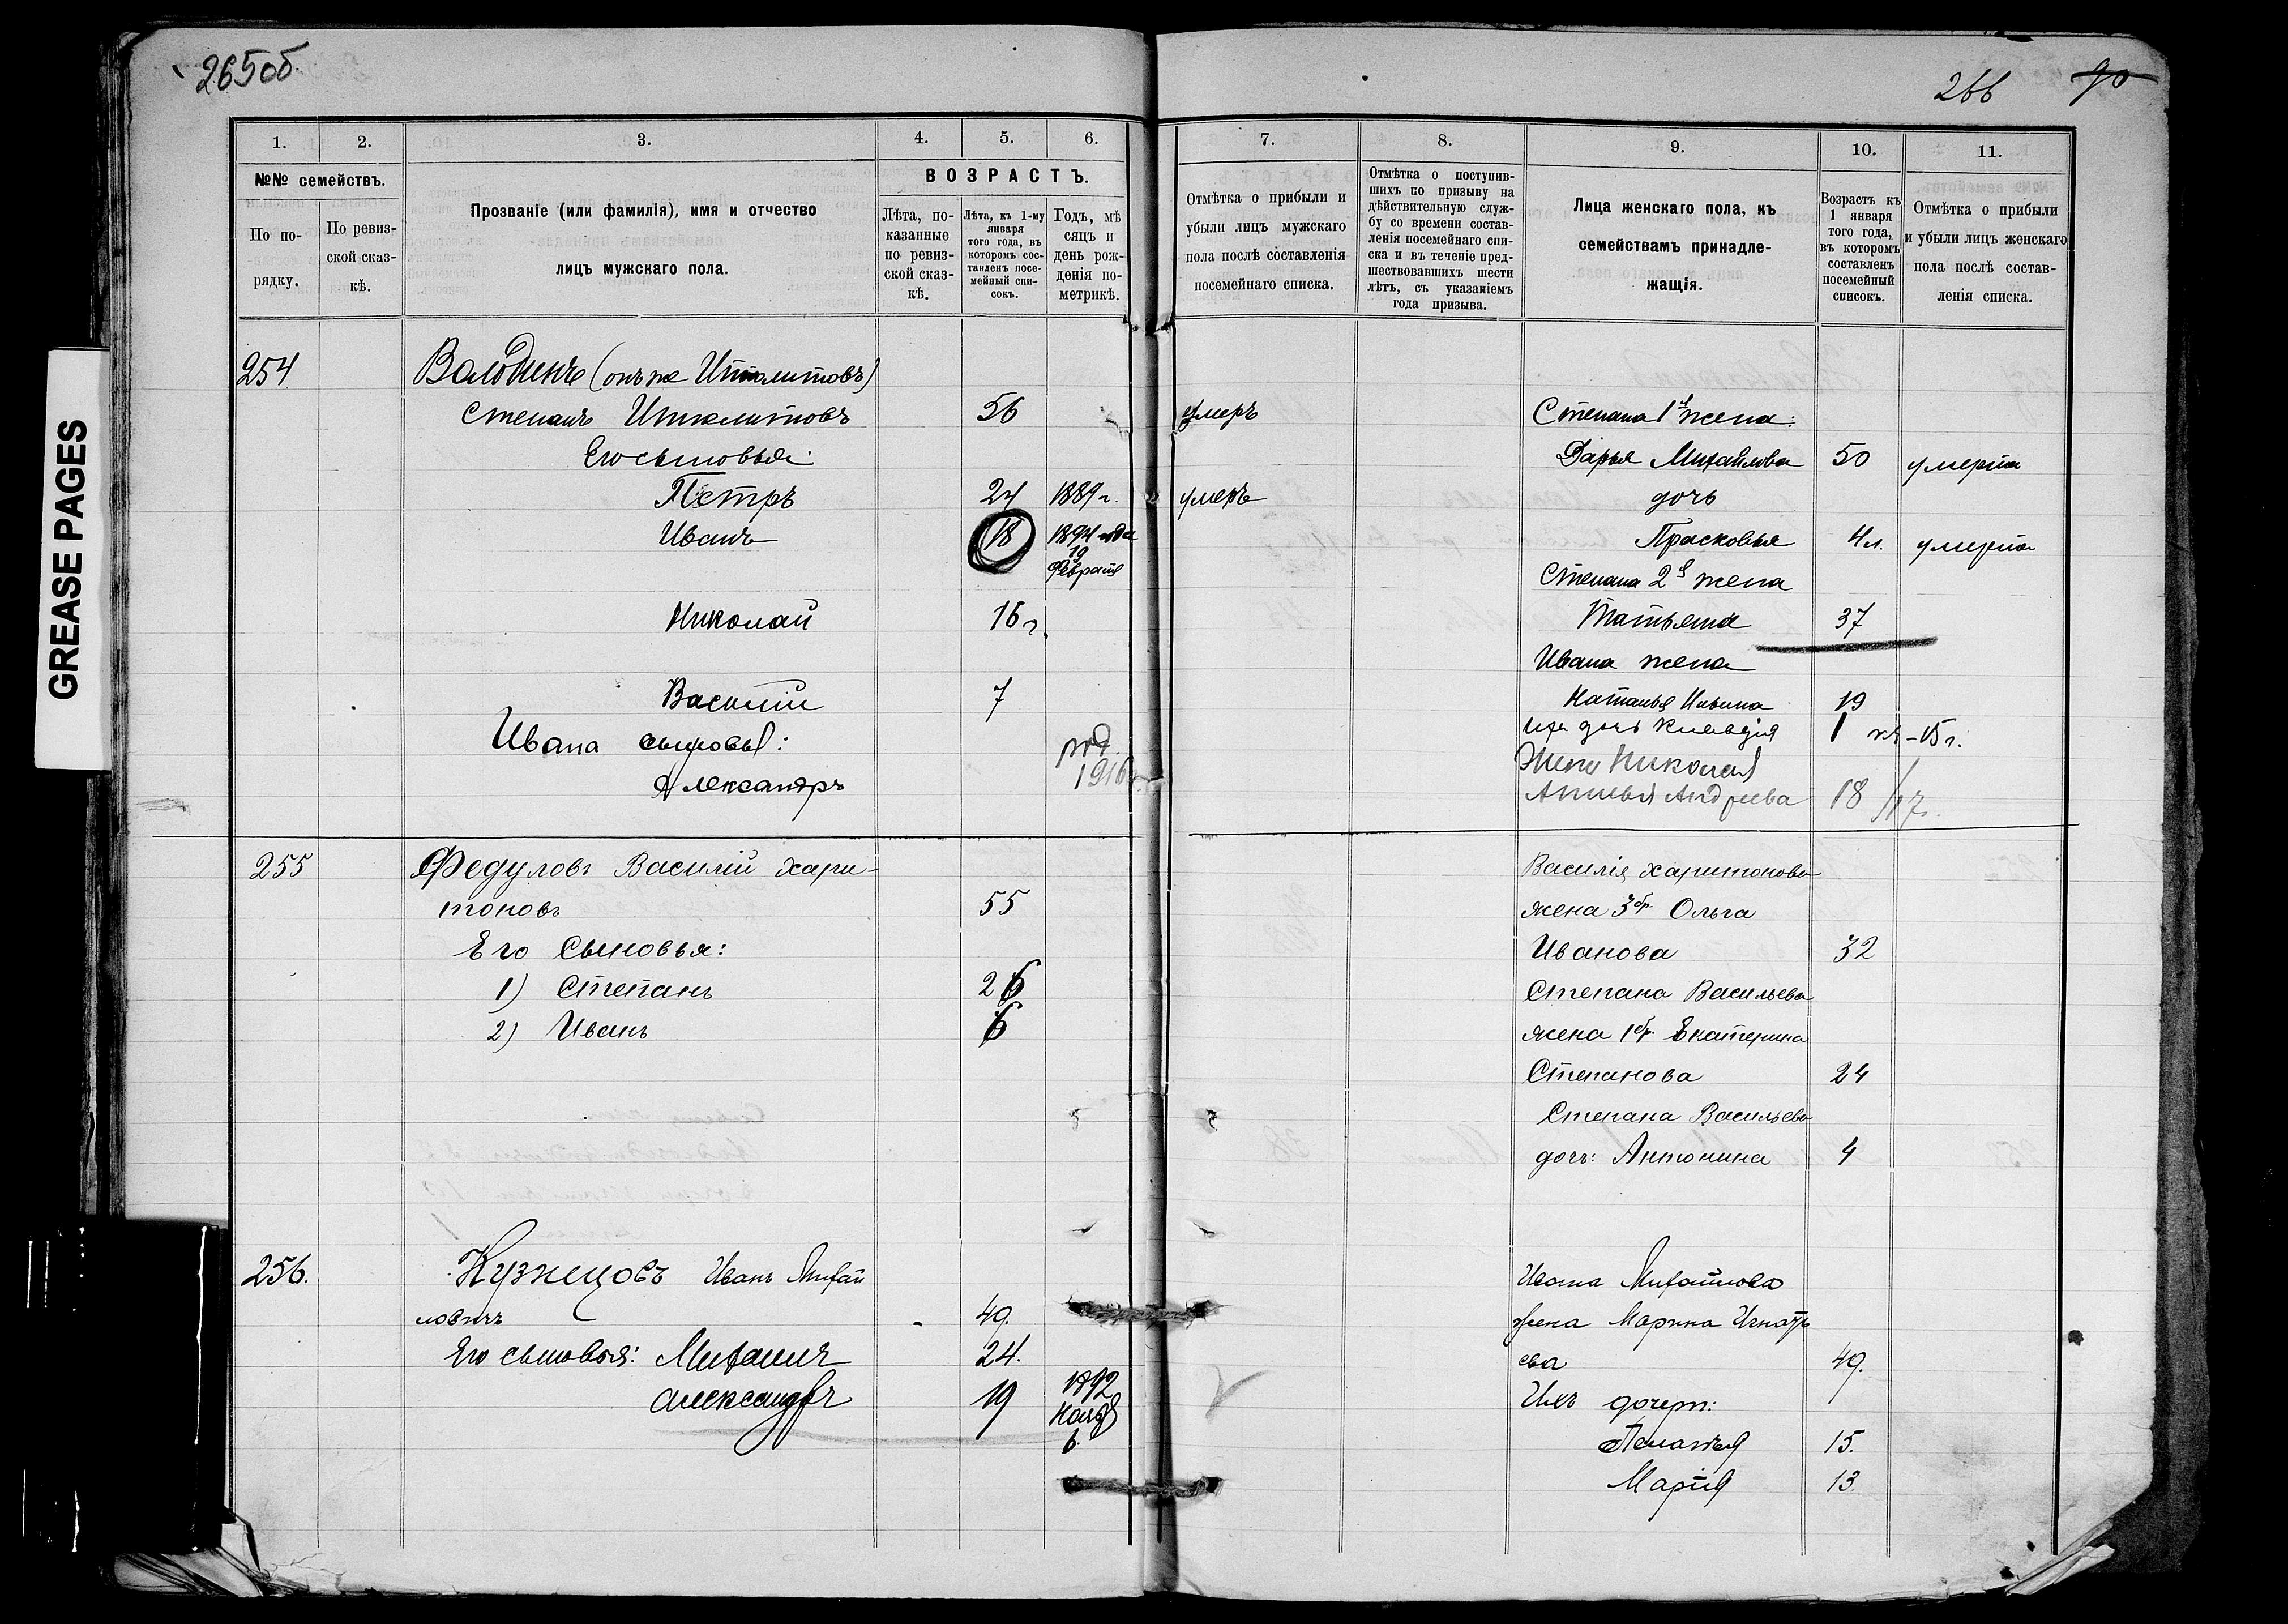 265об
266 90
GREASE PAGES
1. 2. 3. 4. 5. 6.
№№ семействъ.
По по-
рядку.
По ревиз-
ской сказ-
кѣ.
Прозваніе (или фамилія), имя и отчество
лицъ мужскаго пола.
ВОЗРАСТЪ.
Лѣта, по-
казанные
по ревиз-
ской сказ-
кѣ.
Лѣта, къ 1-му
января
того года, въ
которомъ сос-
тавленъ посе-
мейный спи-
сокъ.
Годъ, мѣ
сяцъ и
день рож-
денія по-
метрикѣ.
7. 8. 9. 10. 11.
Отмѣтка о прибыли и
убыли лицъ мужскаго
пола послѣ составленія
посемейнаго списка.
Отмѣтка о поступив-
шихъ по призыву на
дѣйствительную служ-
бу со времени состав-
ленія посемейнаго спи-
ска и въ теченіе пред-
шествовавшихъ шести
лѣтъ, съ указаніемъ
года призыва.
Лица женскаго пола, къ
семействамъ принадле-
жащія.
Возрастъ къ
1 января
того года,
въ которомъ
составленъ
посемейный
списокъ.
Отмѣтка о прибыли
и убыли лицъ женскаго
пола послѣ состав-
ленія списка.
254 Валодинъ (онъ же Ипполитовъ)
Степанъ Ипполитовъ 56 умеръ
Его сыновья:
Петръ 24 1889 г. умеръ
Иванъ 18 1894 года
19
Февраля
Николай 16 г.
Василій 7
Ивана сыновья:
Александръ род. 1916 г.
Степана 1я жена:
Дарья Михайлова 50 умерла
дочь
Прасковья 4 л. умерла
Степана 2я жена
Татьяна 37
Ивана жена
Наталья Ильина 19
Их дочь Клавдія 1 15 г.
Жена Николая
Андреева 18 /17 г.
255 Федуловъ Василій Хари-
тоновъ 55
Его Сыновья:
1) Степанъ 26
2) Иванъ 6
Василія Харитонова
жена 3 бр. Ольга
Иванова 32
Степана Васильева
жена 1 бр. Екатерина
Степанова 24
Степана Васильева
дочь: Антонина 4
256. Кузнецовъ Иванъ Михай
ловичъ 49.
Его сыновья: Михаилъ 24.
Александръ 19 1892
Ноября
6.
Ивана Михайлова
жена Марина Игнать
ева 49.
Ихъ дочери:
Пелагея 15.
Марія 13